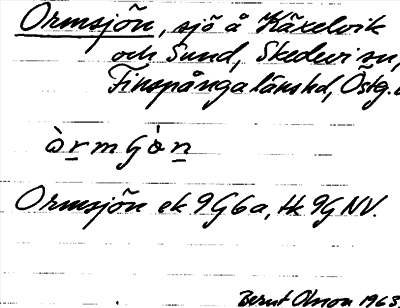 Ormsjön, sjö å Käxelvik
och Sund, Skedevi sn,
Finspångalänshd, Östg.l
òr̲mʃò̲n̲
Ormsjön ek 9G6a, tk 9G NV.
Bernt Olsson 1963